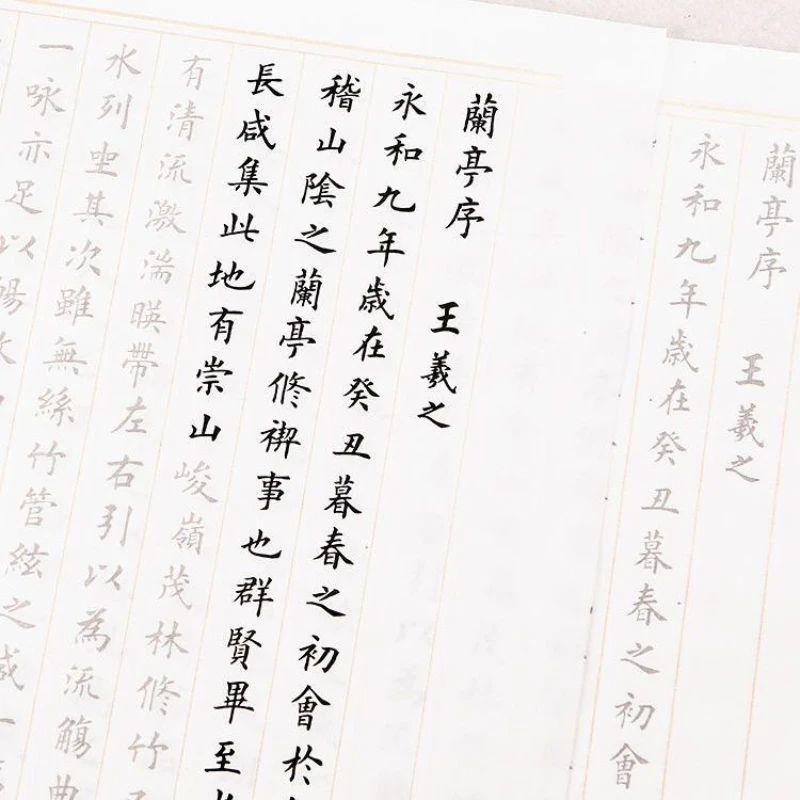 蘭亭序 王羲之
永和九年歲在癸丑暮春之初會
蘭亭序 王羲之
永和九年歲在癸丑暮春之初會於
稽山陰之蘭亭修禊事也群賢畢至
長咸集此地有崇山峻嶺茂林修竹
有清流激湍暎帶左右引以為流觴曲
水列坐其次雖無絲竹管絃之盛一
一咏亦足以暢